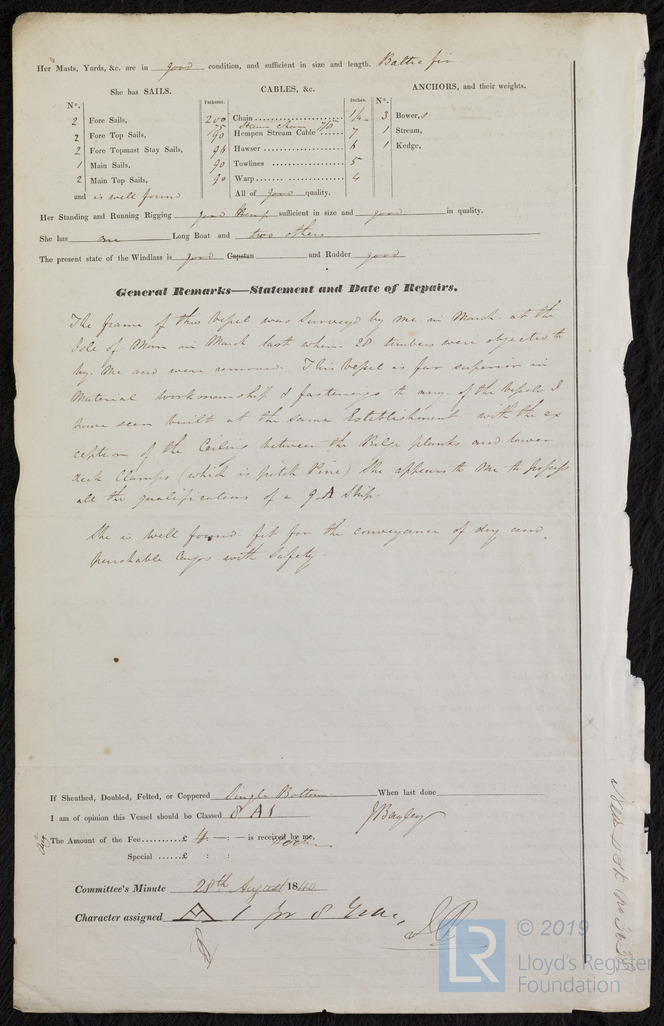 Her Masts, Yards, &c. are in good condition, and sufficient in size and length. Baltic fir
She has SAILS.
CABLES, &c.
ANCHORS, and their weights.
Nº.
Fathoms.
Inches.
Nº.
2 Fore Sails,
2 Fore Top Sails,
2 Fore Topmast Stay Sails,
1 Main Sails,
2 Main Top Sails,
and is well found
200 Chain
75 Stream Chain 7/8
90 Hempen Stream Cable 7
96 Hawser 6
90 Towlines 5
90 Warp 4
All of good quality.
3 Bower,s
1 Stream,
1 Kedge,
Her Standing and Running Rigging good Hemp sufficient in size and good in quality.
She has one Long Boat and two others
The present state of the Windlass is good Capstan and Rudder good
General Remarks—Statement and Date of Repairs.
The frame of this Vessel was Surveyed by me in March at the
Isle of Man in March last when 28 timbers were objected to
by Me and were removed. This Vessel is far superior in
Material Workmanship & fastenings to any of the Vessels I
have seen built at the same Establishment with the ex
ception of the Ceiling between the Bilge planks and lower
deck Clamps (which is pitch Pine) She appears to Me to possess
all the qualifications of a 9 A Ship.
She is well found fit for the conveyance of dry and
perishable Cargo with Safety
If Sheathed, Doubled, Felted, or Coppered Single Bottom When last done
I am of opinion this Vessel should be Classed 8 A1
J Bayley
The Amount of the Fee £ 4 : — : — is received by me,
Special £ : :
Committee's Minute 28th August 1840
Character assigned A 1 for 8 Years
LR © 2019
Lloyd's Register
Foundation